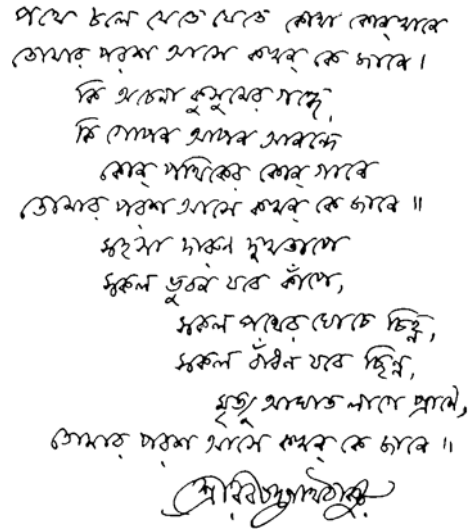 পথে চলে যেতে যেতে কোথা কোন্‌খানে
তোমার পরশ আসে কখন্ কে জানে।
কি অচেনা কুসুমের গন্ধে,
কি গোপন আপন আনন্দে
কোন্ পথিকের কোন্ গানে
তোমার পরশ আসে কখন্ কে জানে॥
সহসা দারুণ দুখতাপে
সকল ভুবন যবে কাঁপে,
সকল পথের ঘোচে চিহ্ন,
সকল বাঁধন যবে ছিন্ন,
মৃত্যু আঘাত লাগে প্রাণে,
তোমার পরশ আসে কখন্ কে জানে॥
শ্রীরবীন্দ্রনাথ ঠাকুর